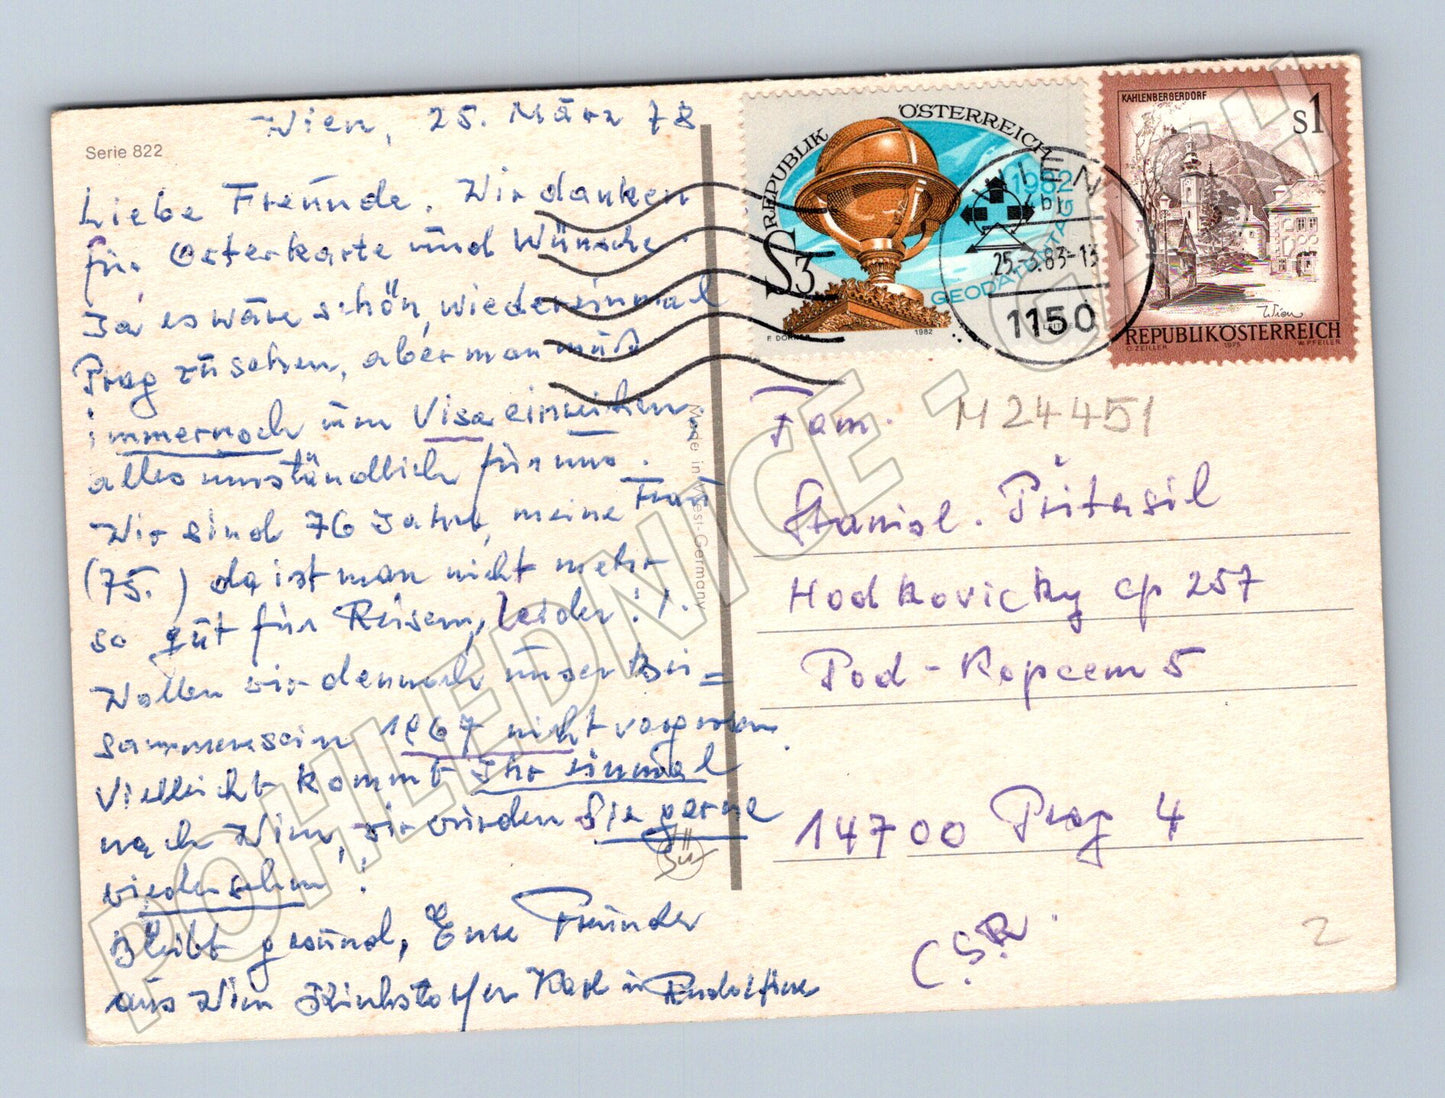 Serie 822
Wien, 25. März 78
Liebe Freunde. Wir danken
für Osterkarte und Wünsche.
Ja, es wäre schön, wiedereinmal
Prag zu sehen, aber man muß
immernoch um Visa einreichen,
alles umständlich für uns.
Wir sind 76 Jahre, meine Frau
(75.) da ist man nicht mehr
so gut für Reisen, leider!).
Wollen wir dennoch unser Bei=
sammensein 1967 nicht vergessen.
Vielleicht kommt Ihr einmal
nach Wien, wir würden Sie gerne
wiedersehen!
Bleibt gesund, Eure Freunde
aus Wien Karl u Rudolfine
Made in West-Germany
REPUBLIK ÖSTERREICH
S3
1982
GEODÄTENTAG
1982
WIEN
25.-3.83-13
1150
KAHLENBERGERDORF
S1
Wien
REPUBLIK ÖSTERREICH
O. ZEILER 1975 W. PFEILER
Fam. M24451
Stanisl. Přitasil
Hodkovicky cp 257
Pod-Kopcem 5
14700 Prag 4
ČSR.
2
POHLEDNICE - GALTH